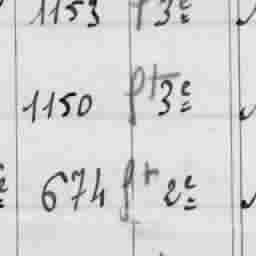 1153 ft 3e
1150 ft 3e
674 ft 2e